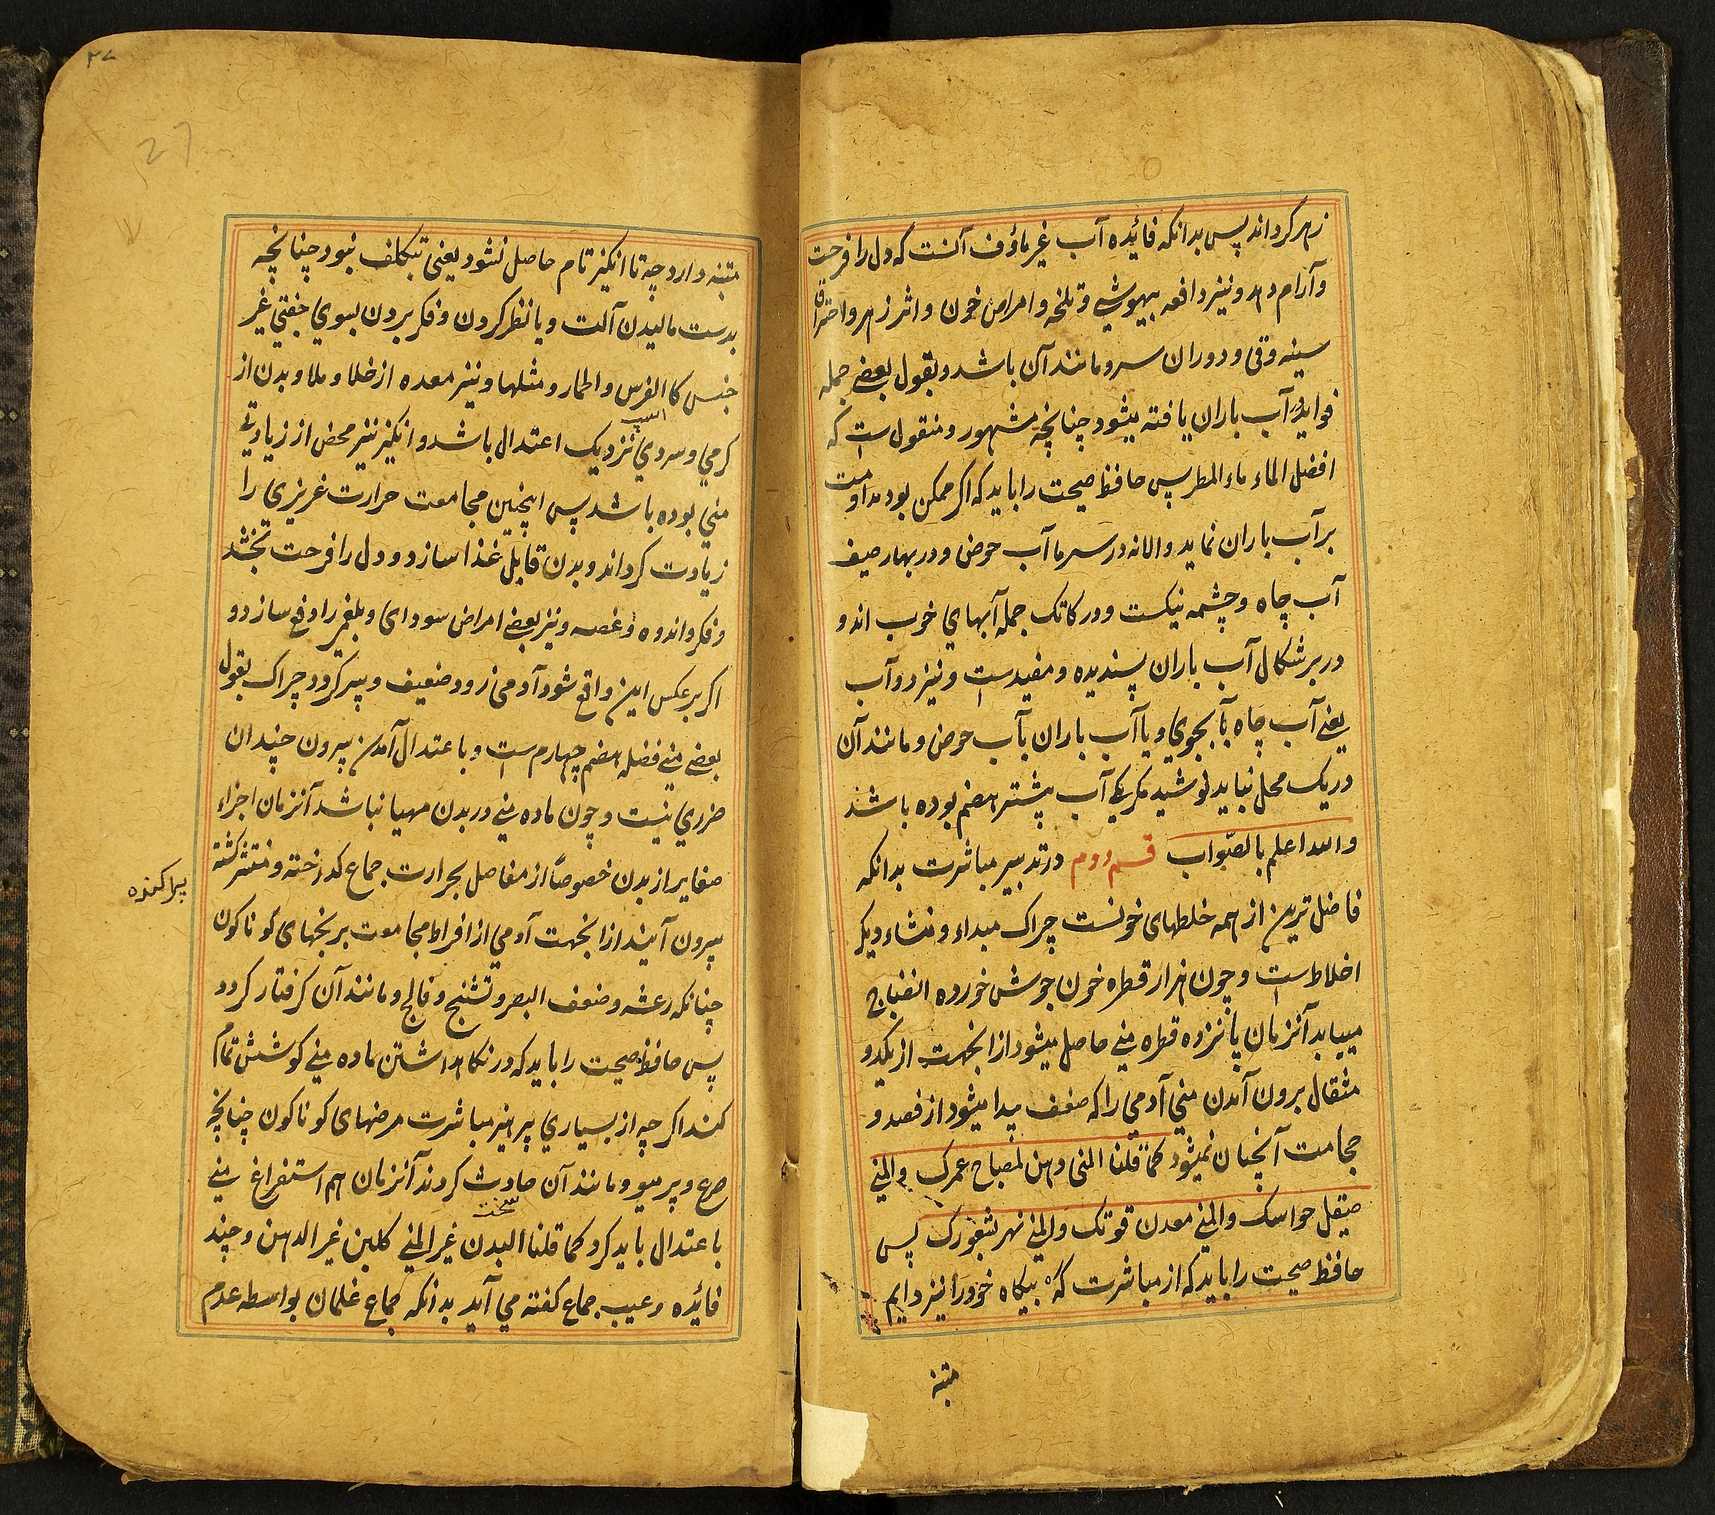 زهر کرداند پس بدانکه فائیده آب غیر ماؤف آنست که دل را فرحت
و آرام دهد و نیز دافعه بیهوشی و تلخه و امراض خون و اثر زهر و احتراق
سینه وقی و دوران سر و مانند آن باشد و بقول بعضی جمله
فواید آب باران یافته میشود چنانچه مشهور و منقول است که
افضل الماء ماء المطر پس حافظ صحت را باید که اکر ممکن بود مداومت
بر آب باران نماید و الا نه در سرما آب حوض و در بهار صیف
آب چاه و چشمه نیکست و در کاتک جمله آبهای خوب اند و
در برشکال آب باران پسندیده و مفیدست و نیز دو آب
یعنی آب چاه بآبجوی و یا آب باران بآب حوض و مانند آن
در یک محل نباید نوشید مکر یکی آب پیشتر هضم بوده باشد
والله اعلم بالصواب قسم دوم در تدبیر مباشرت بدانکه
فاضل ترین از همه خلطهای خونست چراک مبداء و منشاء دیکر
اخلاط است و چون هزار قطره خون جوش خورده انضاج
مییابد آنزمان پانزده قطره منی حاصل میشود ازانجهت از یکدو
مثقال برون آمدن منی آدمی را که ضعف پیدا میشود از فصد و
حجامت آنچنان نمیشود کما قلنا المنی دهن لمصباح عمرک والمنی
صیقل حواسک والمنی معدن قوتک والمنی نهر بشعورک پس
حافظ صحت را باید که از مباشرت که بیکاه خود را نیز دایم
متنبه
۲۷
27
متنبه دارد چه تا انکیز تام حاصل نشود یعنی تبکلف نبود چنانچه
بدست مالیدن آلت و یا نظر کردن و فکر بردن بسوی جفتی غیر
جنس کالفرس والحمار و مثلها و نیز معده از خلا و ملا و بدن از
اسب
کرمی و سردی نزدیک اعتدال باشد و انکیز نیز محض از زیادتی
منی بوده باشد پس اینچنین مجامعت حرارت غریزی را
زیادت کرداند و بدن قابل غذا سازد و دل را فرحت بخشد
و فکر و اندوه و غصه و نیز بعضی امراض سودای و بلغمی را دفع سازد و
اکر برعکس این واقع شود آدمی زود ضعیف و پیر کردد چراک بقول
بعضی منی فضله هضم چهارم ست و باعتدال آمدن بیرون چندان
ضرری نیست و چون ماده منی در بدن مهیا نباشد آنزمان اجزاء
صغایر از بدن خصوصاً از مفاصل بحرارت جماع کداخته و منتشر کشته
پراکنده
بیرون آیند ازانجهت آدمی از افراط مجامعت برنجهای کوناکون
چنانکه رعشه و ضعف البصر و تشنج و فالج و مانند آن کرفتار کردد
پس حافظ صحت را باید که در نکاهداشتن ماده منی کوشش تمام
کند اکر چه از بسیاری پرهیز مباشرت مرضهای کوناکون چنانچه
صرع و پرمیو و مانند آن حادث کردند آنزمان هم استفراغ منی
سخت
باعتدال باید کرد کما قلنا البدن غیر المنی کلبن غیر الدهن و چند
فائیده و عیب جماع کفته می آید بدانکه جماع غلمان بواسطه عدم